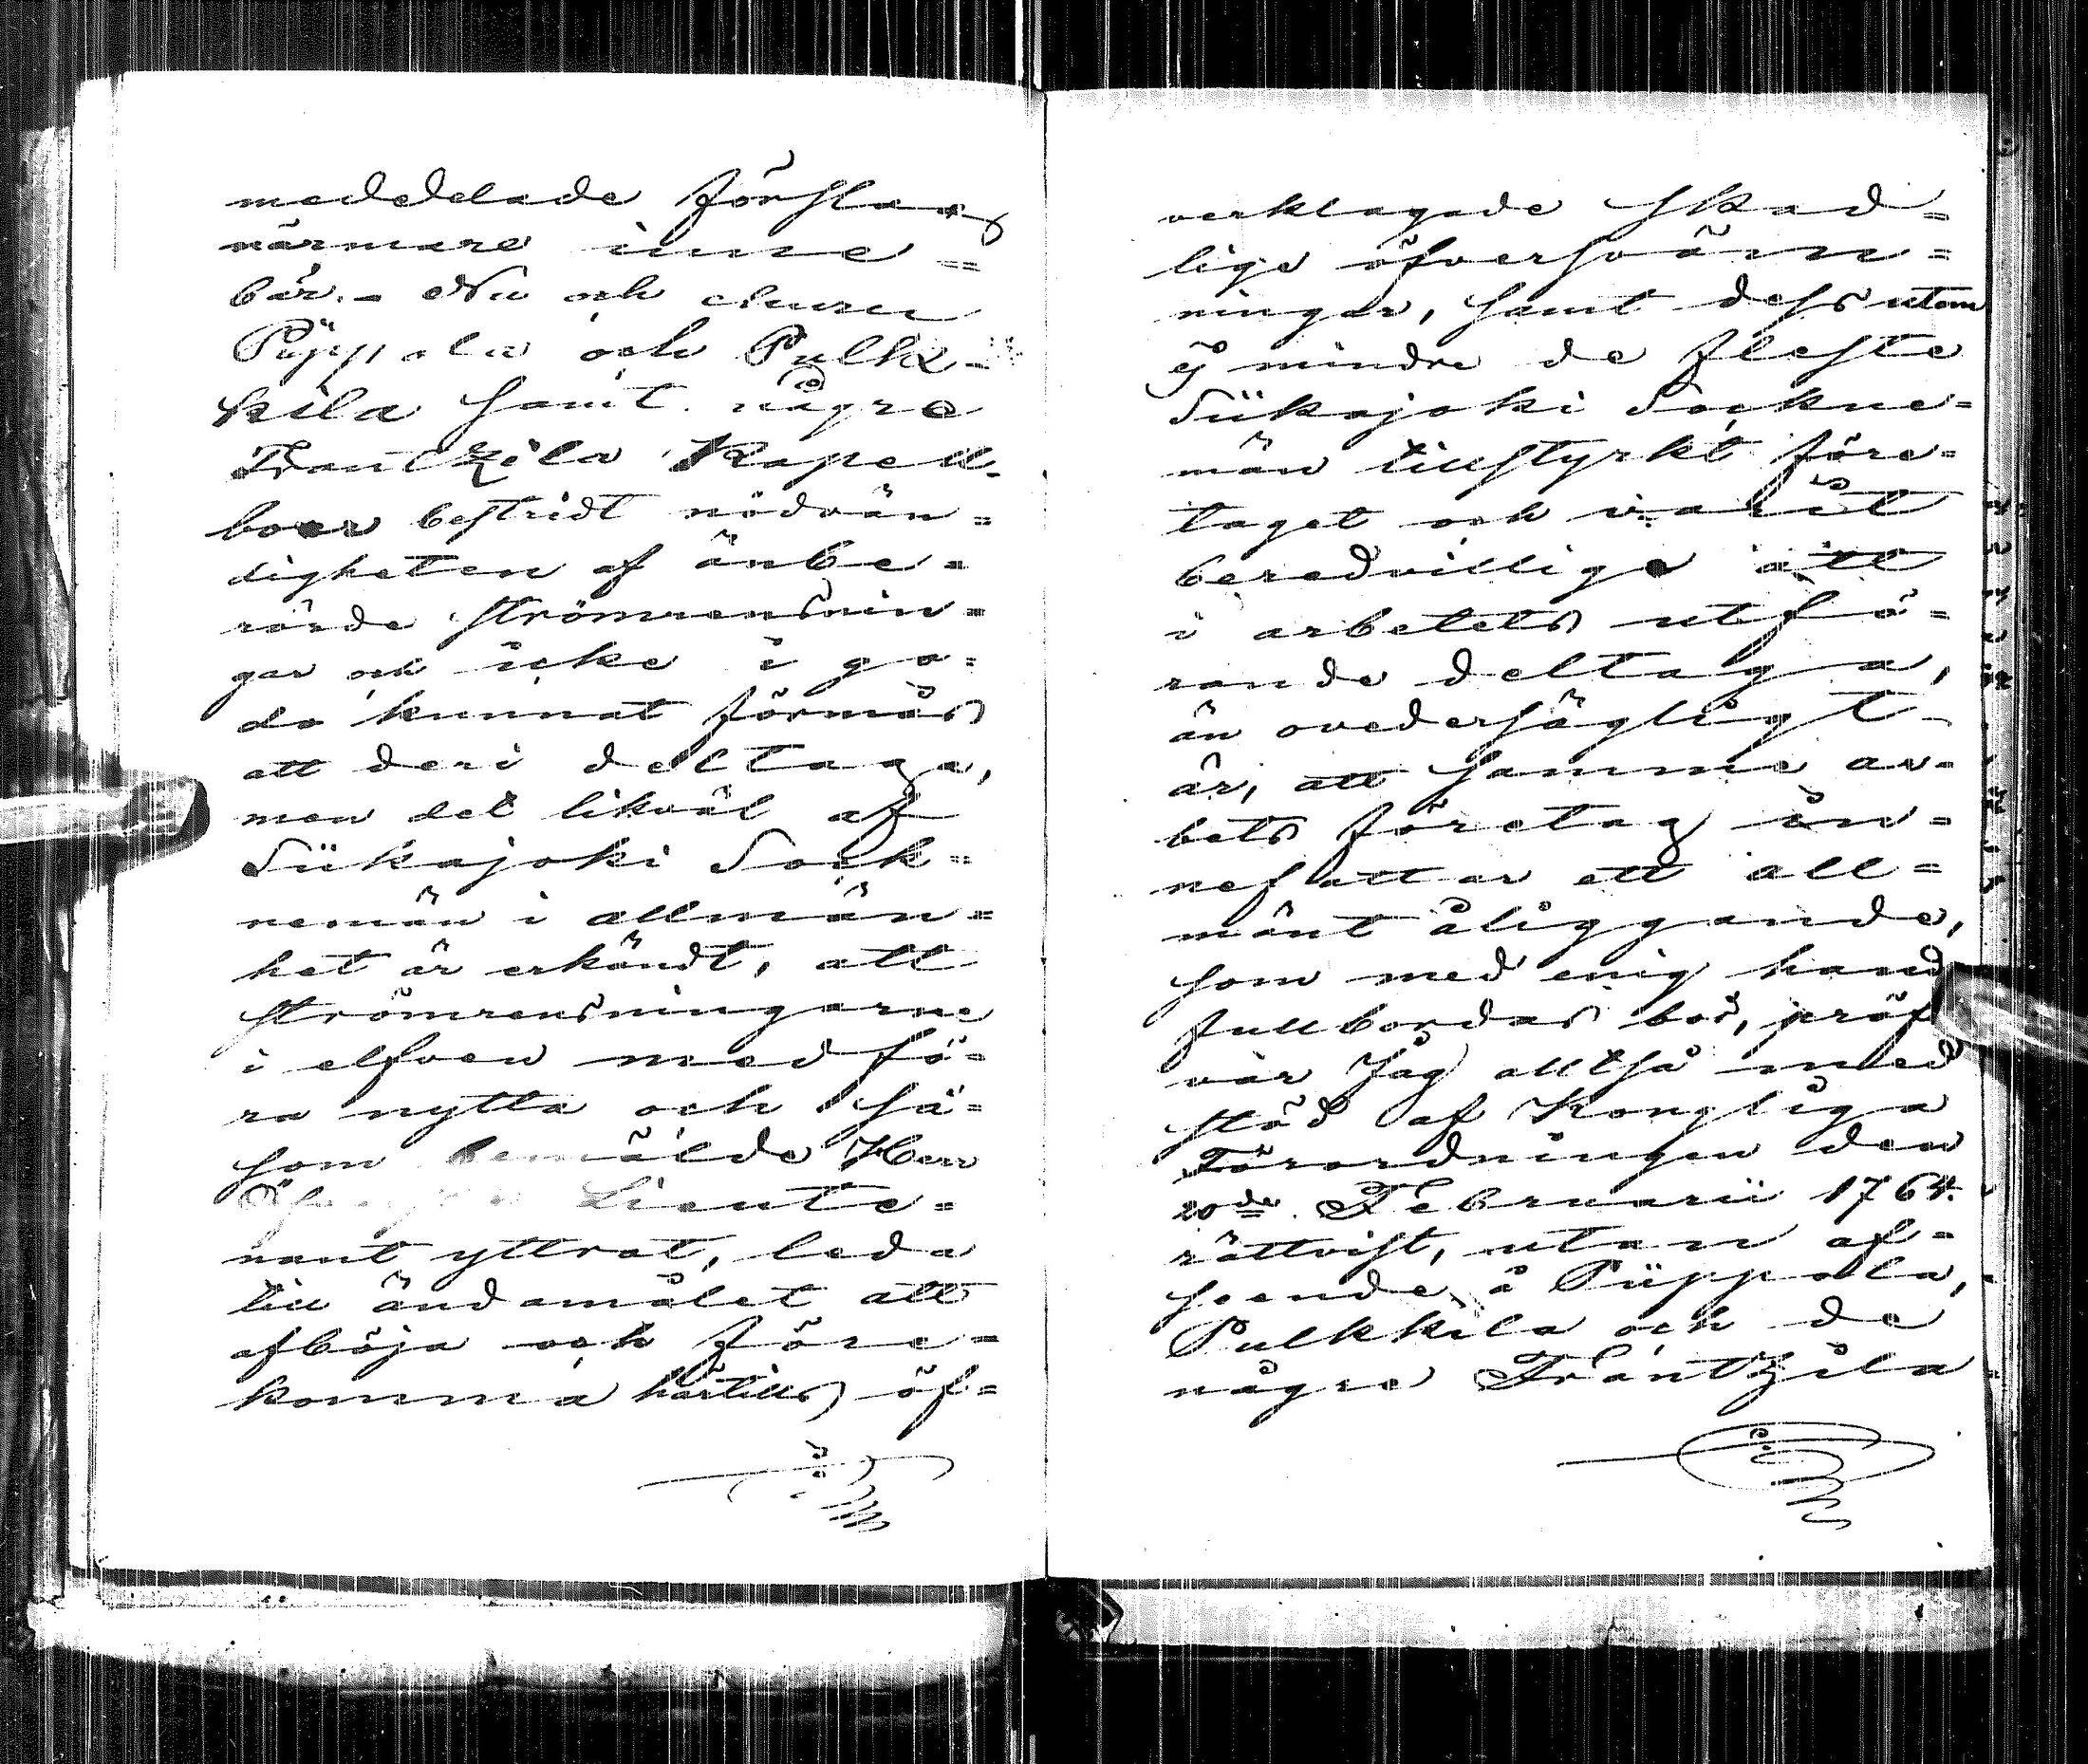 meddelade förslag
närmare inne=
bär. - Nu och ehuru
Püppola och Pulk=
kila samt någre
Frantzila Kapell=
boer bestridt nödvän=
digheten af änbe=
rörde strömrensnin=
gar och icke i go=
do kunnat förmås
att deri deltaga,
men det likväl af
Siikajoki Sock=
nemän i allmän=
het är erkändt, att
strömrensningarne
i elfven medfö=
ra nytta och så=
som bemälde Herr
Liente=
nant yttrat, leda
till ändamålet att
afböja och före=
komma härtills öf=
verklagade skad=
lige öfversväm=
ningar, samt dessutom
ej mindre de fleste
Siikajoki Sockne=
män tillstyrkt före=
taget och varit
beredvillige att
i arbetets utfö=
rande deltaga,
än ovedersägligt
är, att samma ar=
bets företag in=
nefattar ett all=
mänt åliggande,
som med enig hand
fullbordas bör, pröf
var Jag alltså med
stöd af Kongliga
Förordningen den
20de Februarii 1764.
rättvist, utan af=
seende å Püppola,
Pulkkila och de
någre Frantzila